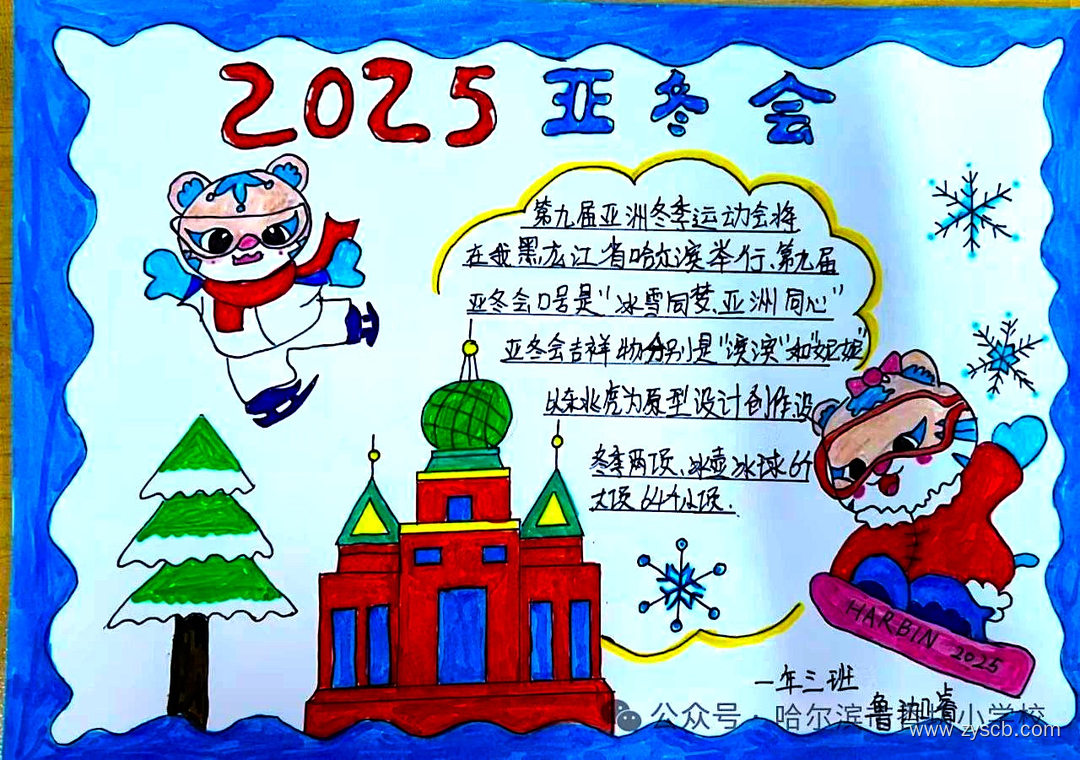 2025 亚冬会
第九届亚洲冬季运动会将
在我黑龙江省哈尔滨举行、第九届
亚冬会口号是"冰雪同梦、亚洲同心"
亚冬会吉祥物分别是"滨滨"和"妮妮"
以东北虎为原型设计创作设
冬季两项、冰壶冰球6个
大项64个小项.
HARBIN 2025
一年三班
公众号·哈尔滨 小学校
www.zyscb.com